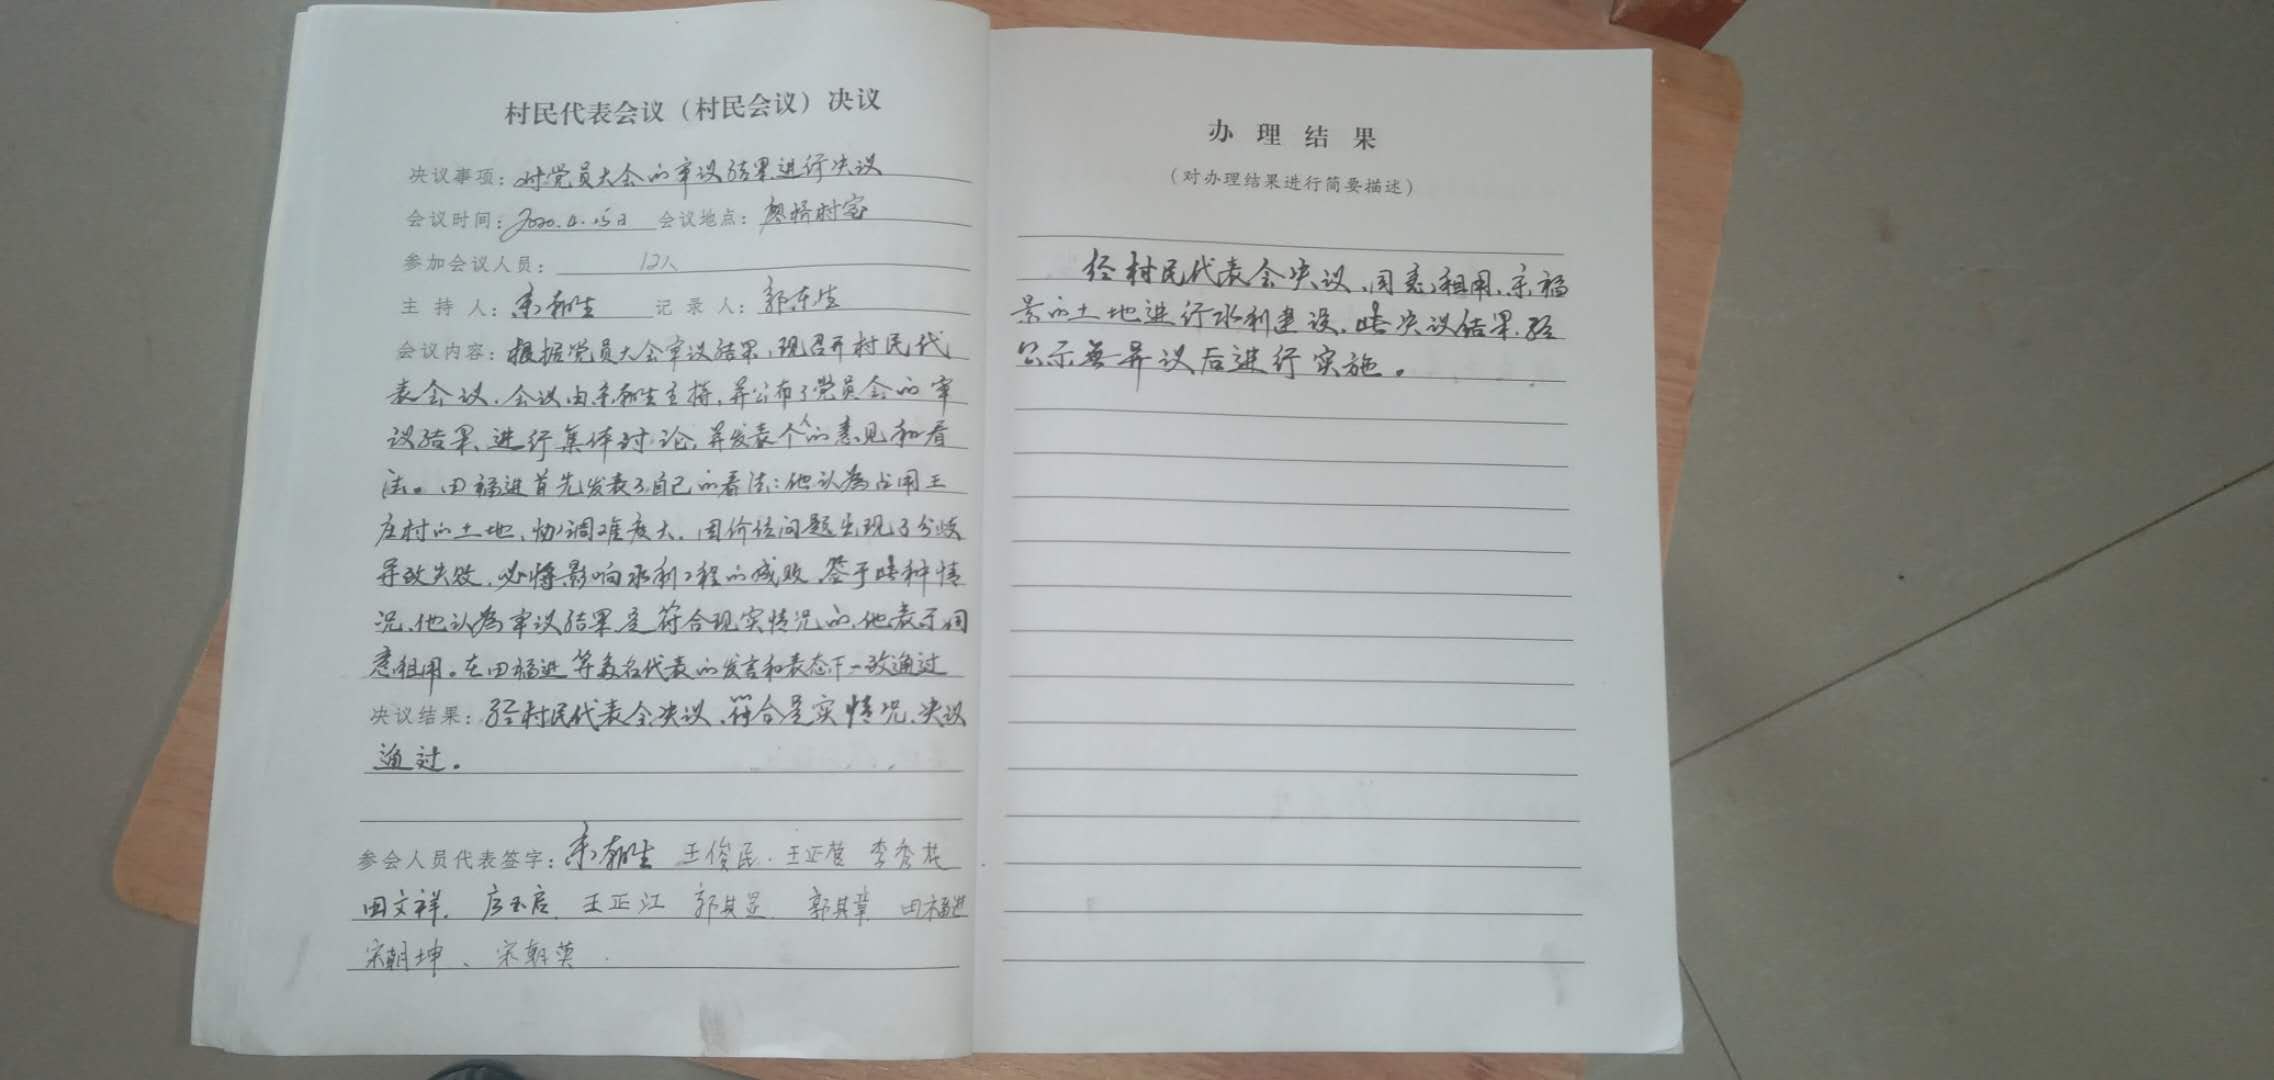 村民代表会议（村民会议）决议
决议事项：对党员大会的审议结果进行决议
会议时间：2020.4.15日 会议地点：村室
参加会议人员：12人
主持人：宋朝生 记录人：郭东生
会议内容：根据党员大会审议结果，现召开村民代
表会议，会议由宋朝生主持，并公布了党员会的审
议结果，进行集体讨论，并发表个人的意见和看
法。田福进首先发表了自己的看法：他认为占用王
庄村的土地，协调难度大，因价位问题出现了分歧
导致失败，必将影响水利工程的成败，签于此种情
况，他认为审议结果是符合现实情况的，他表示同
意租用。在田福进等多名代表的发言和表态下一致通过
决议结果：经村民代表会决议，符合是实情况，决议
通过。
参会人员代表签字：宋朝生 王俊民．王正 李秀花
田文祥． 王正江 郭其 郭其章 田福进
宋朝坤、宋朝英．
办理结果
（对办理结果进行简要描述）
经村民代表会决议，同意租用宋福
景的土地进行水利建设，此决议结果经
公示无异议后进行实施。